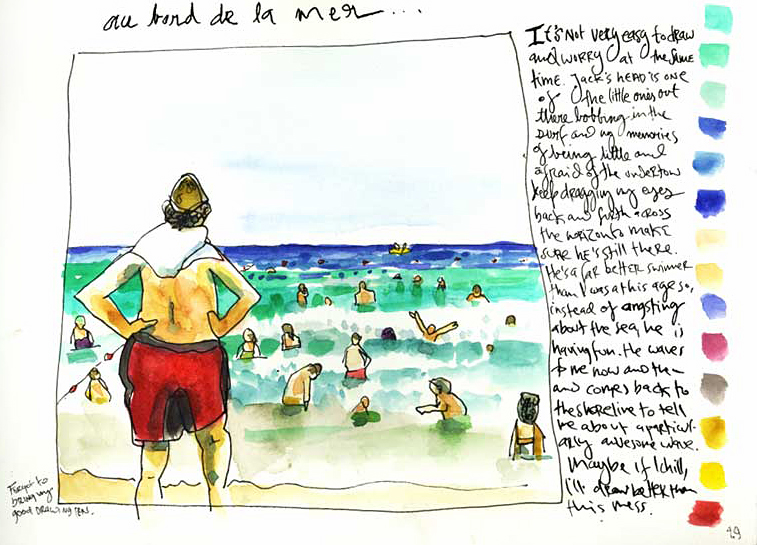 au bord de la mer...
It's Not very easy to draw
and worry at the same
time. Jack's head is one
of the little ones out
there bobbing in the
surf and my memories
of being little and
afraid of the undertow
keep dragging my eyes
back and forth across
the horizon to make
sure he's still there.
He's a far better swimmer
than I was at this age so,
instead of angsting
about the sea, he is
having fun. He waves
to me now and then
and comes back to
the shoreline to tell
me about a particul-
arly awesome wave.
Maybe if I chill,
I'll draw better than
this mess.
Forgot to
bring my
good DRAWING PENS.
49